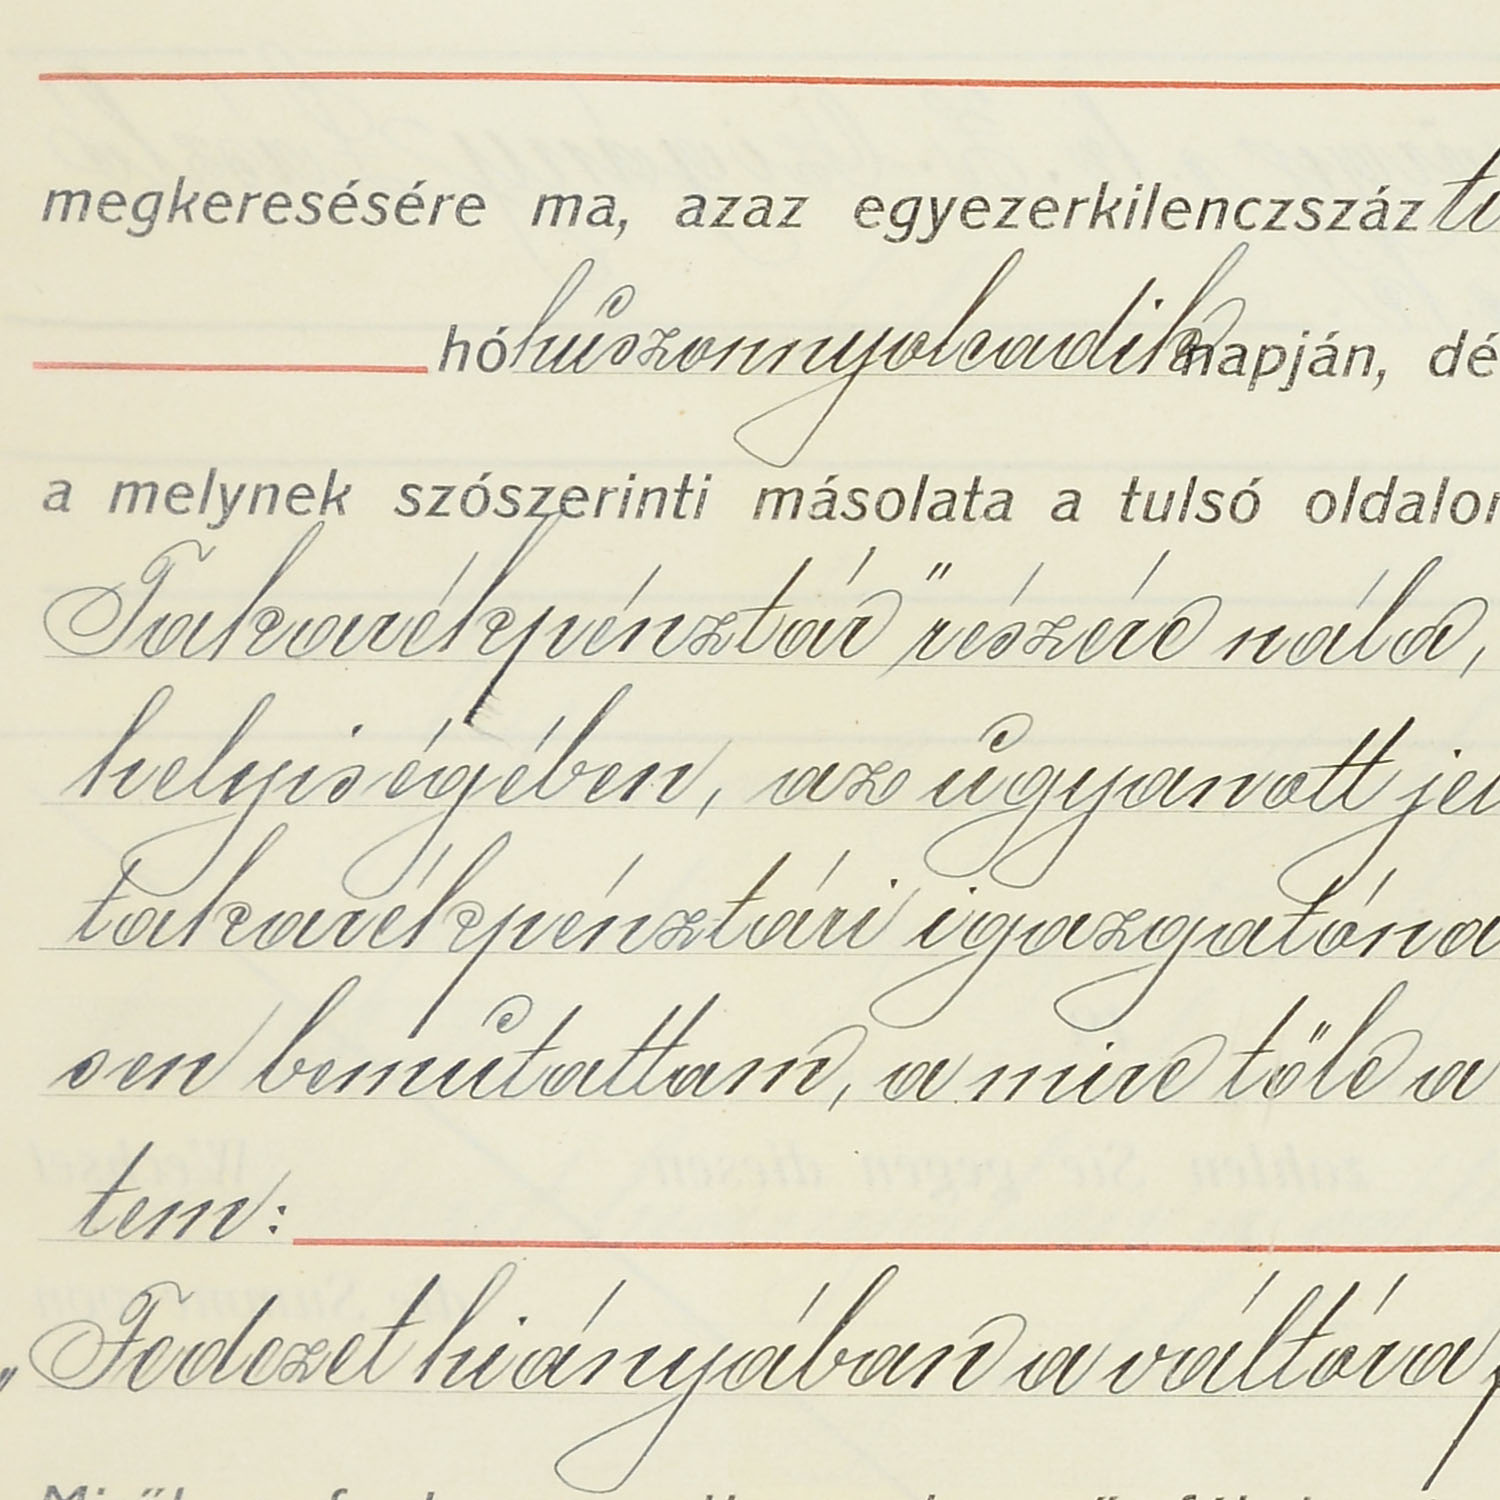 megkeresésére ma, azaz egyezerkilenczszáz
hó huszonnyolcadik napján, dé
a melynek szószerinti másolata a tulsó oldalon
Takarékpénztár" részére nála,
helyiségében, az ugyanott jel
takarékpénztári igazgatóna
sen bemutattam, a mire tőle a
tem:
„Fedezet hiányában a váltóra